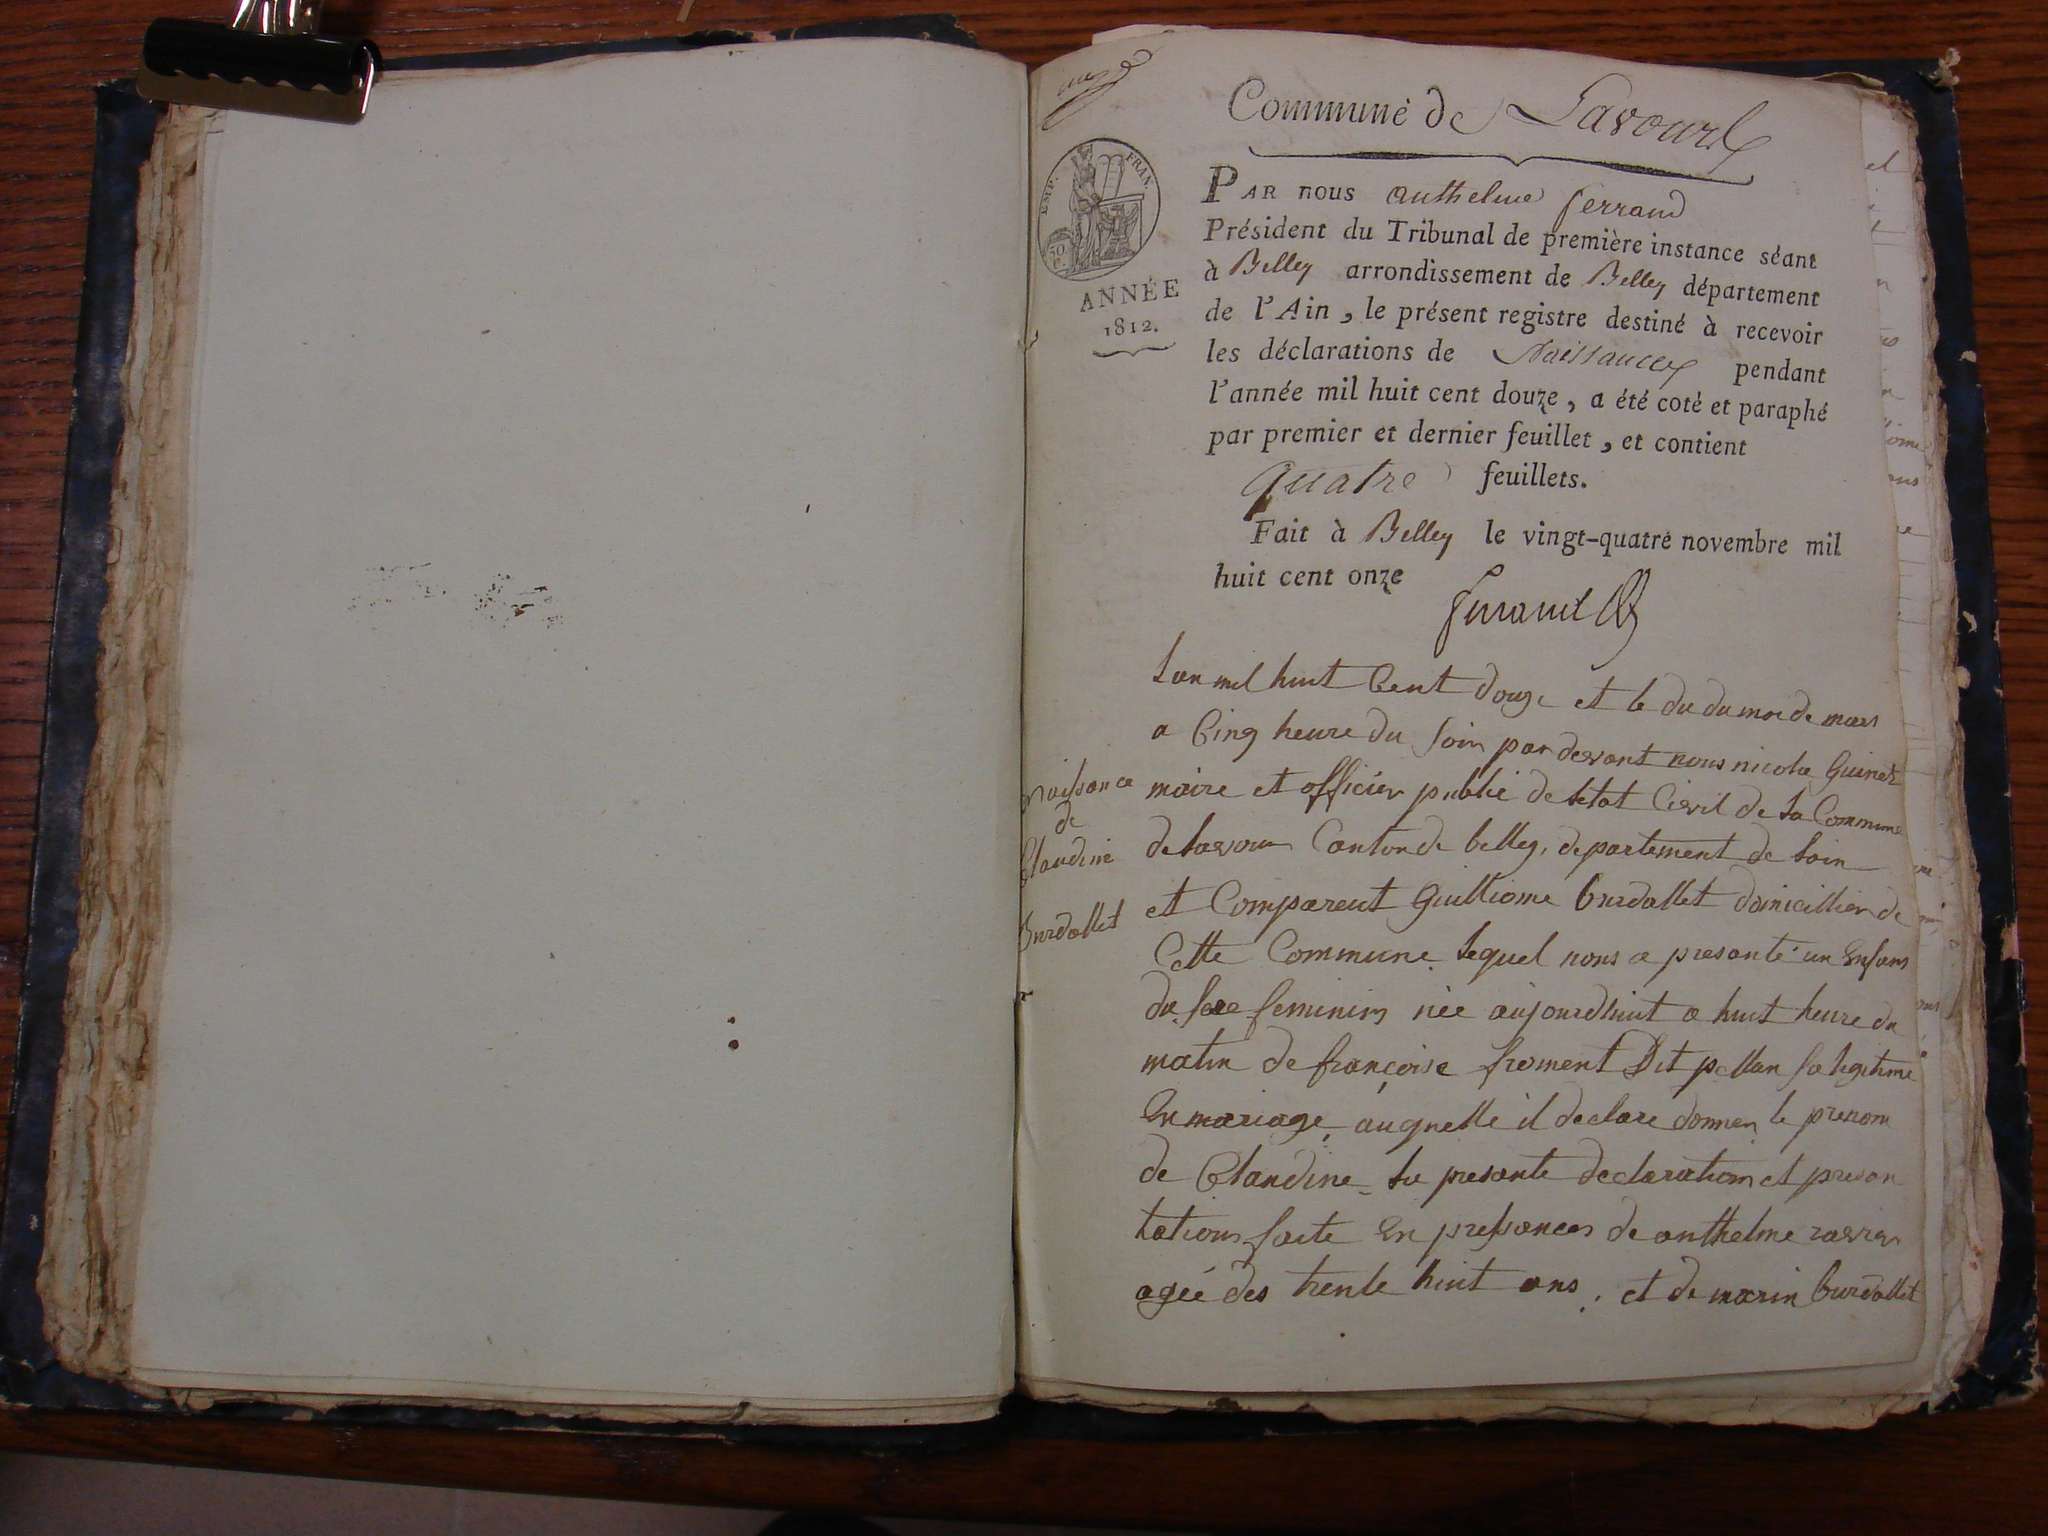 Commune de Lavours
EMP. FRAN.
50
C.
ANNÉE
1812.
PAR nous anthelme ferrand
Président du Tribunal de première instance séant
à Belley arrondissement de Belley département
de l'Ain, le présent registre destiné à recevoir
les déclarations de Naissances pendant
l'année mil huit cent douze, a été coté et paraphé
par premier et dernier feuillet, et contient
quatre feuillets.
Fait à Belley le vingt-quatre novembre mil
huit cent onze
ferrand
naissance
de
Claudine
burdallet
Lan mil huit Cent douze et le du mois de mars
a Cinq heure du soir par devant nous nicolas Guinet
maire et officier public de letat Civil de la Commune
de lavour Canton de belley, departement de lain
et Comparent Guilliome burdallet domicillier de
Cette Commune lequel nous a presanté un Enfans
du sexe feminin née aujourdhuit a huit heure du
matin de françoise froment Dit pellan sa ligitime
En mariage, auquelle il declare donner le prenom
de Claudine la presante declaration et presan
tations faite En pressances de anthelme ravier
agée des trente huit ans, et de marin burdallet